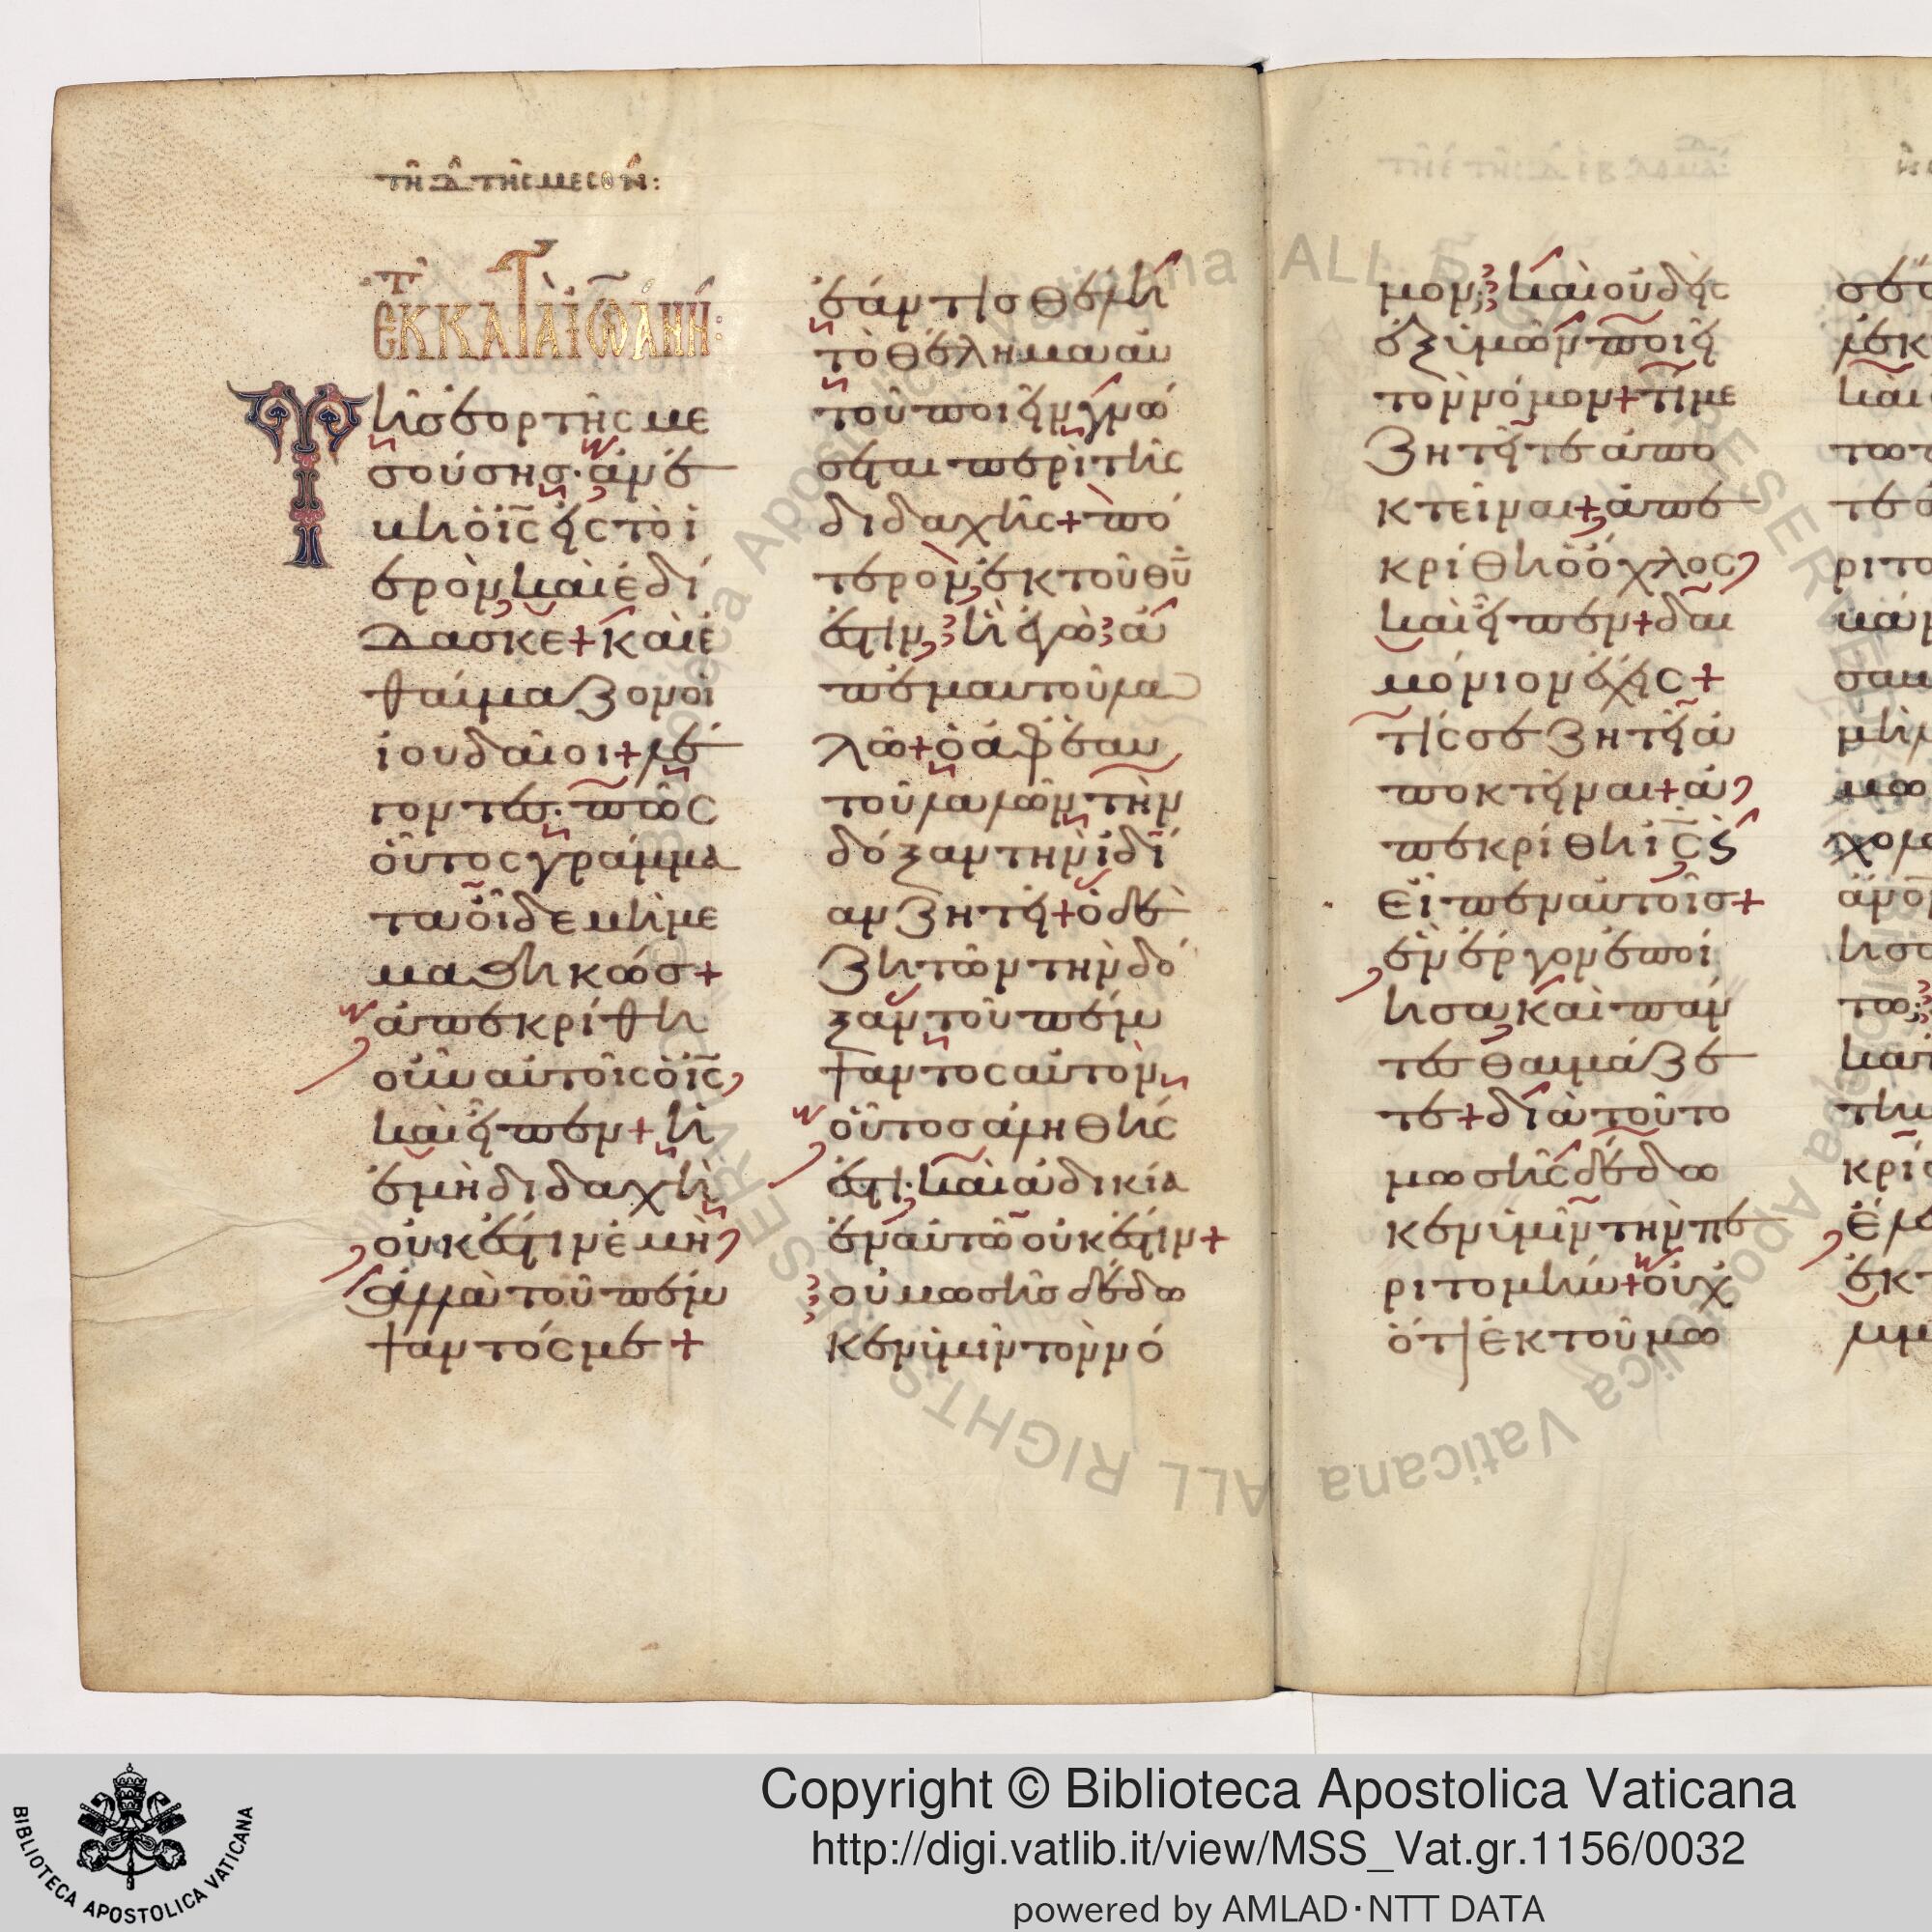 τῆ δ τῆς μεσον:
ἐκ κατὰ ἰωάνη:
Τῆσ ἑορτῆς με
σούσης· ἀνέ
βη ὁ ἰς εἰς τὸ ἱ
ερὸν καὶ ἐδί
δασκε + καὶ ἐ
θαύμαζον οἱ
ἰουδαῖοι + λέ
γοντες· πῶς
οὗτος γράμμα
τα οἶδε μὴ με
μαθηκώσ +
ἀπεκρίθη
οὖν αὐτοῖς ὁ ἰς
καὶ εἶπεν + ἡ
ἐμὴ διδαχὴ
οὐκ ἔστιν ἐμὴ
ἀλλὰ τοῦ πέμ
ψαντός με +
ἐάν τισ θέλη
τὸ θέλημα αὐ
τοῦ ποιεῖν γνώ
σεται περὶ τῆς
διδαχῆς + πό
τερον ἐκ τοῦ θυ
ἐστιν ἢ ἐγὼ ἀ
π' ἐμαυτοῦ λα
λῶ + ὁ ἀφ' ἑαυ
τοῦ λαλῶν τὴν
δόξαν τὴν ἰδί
αν ζητεῖ + ὁ δὲ
ζητῶν τὴν δό
ξαν τοῦ πέμ
ψαντος αὐτὸν
οὗτοσ ἀληθής
ἐστι· καὶ ἀδικία
ἐν αὐτῶ οὐκ ἔστιν +
οὐ μωσῆσ δέδω
κεν ὑμῖν τὸν νό
μον; καὶ οὐδεὶς
ἐξ ὑμῶν ποιεῖ
τὸν νόμον + τί με
ζητεῖτε ἀπο
κτεῖναι + ἀπε
κρίθη ὁ ὄχλος
καὶ εἶπεν + δαι
μόνιον ἔχεις +
τίς σε ζητεῖ ἀ
ποκτεῖναι + ἀ
πεκρίθη ἰς καὶ
εἶπεν αὐτοῖσ +
ἓν ἔργον ἐποί
ησα καὶ πάν
τες θαυμάζε
τε + διὰ τοῦτο
μωσῆς δέδω
κεν ὑμῖν τὴν πε
ριτομὴν + οὐχ
ὅτι ἐκ τοῦ μω
Copyright © Biblioteca Apostolica Vaticana
http://digi.vatlib.it/view/MSS_Vat.gr.1156/0032
powered by AMLAD·NTT DATA
BIBLIOTECA APOSTOLICA VATICANA